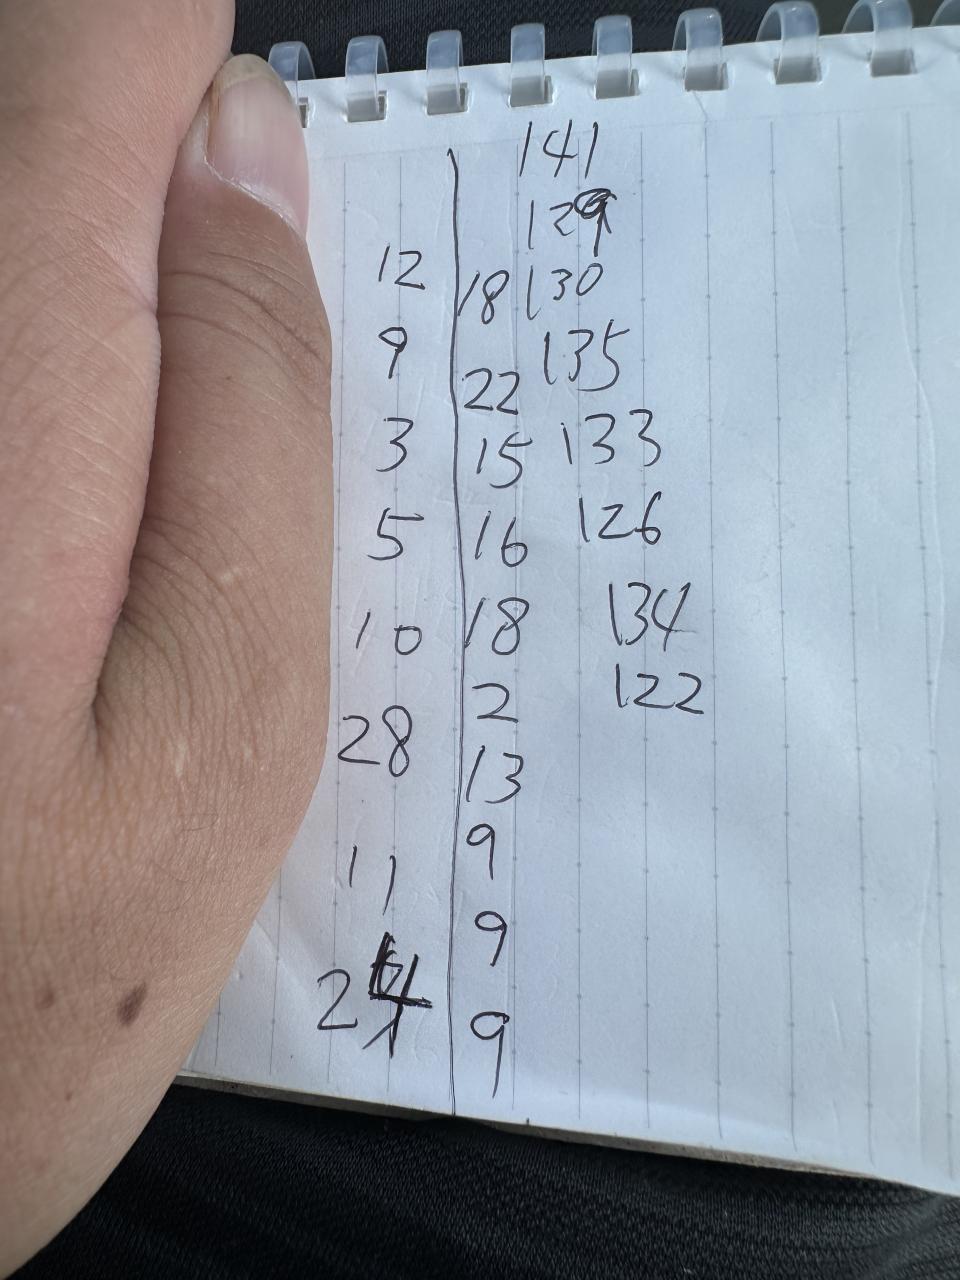 141
129
12 18 130
9 22 135
3 15 133
5 16 126
10 18 134
28 2 122
13
11 9
9
24 9